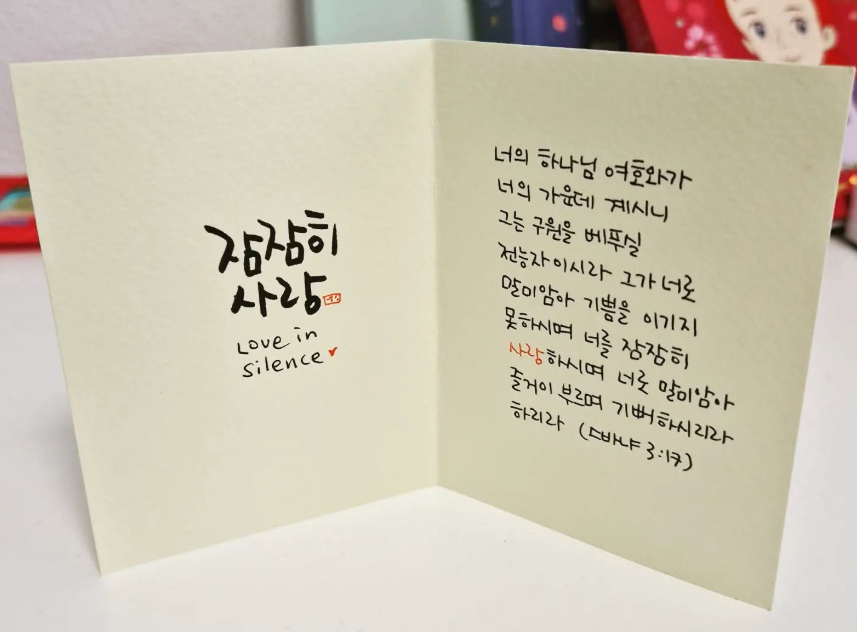 잠잠히
사랑
Love in
silence
너의 하나님 여호와가
너의 가운데 계시니
그는 구원을 베푸실
전능자이시라 그가 너로
말미암아 기쁨을 이기지
못하시며 너를 잠잠히
사랑하시며 너로 말미암아
즐거이 부르며 기뻐하시리라
하리라 (스바냐 3:17)